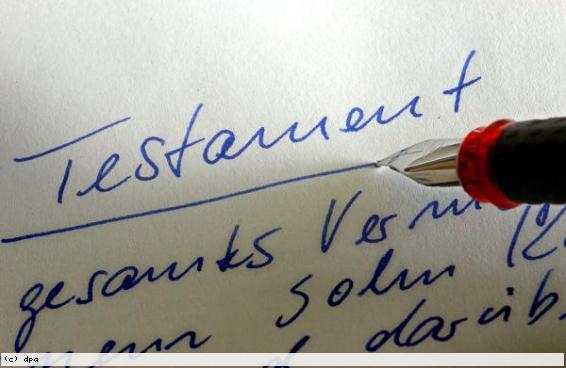 Testament
gesamtes Verm
mein Sohn K
darüb
(c) dpa